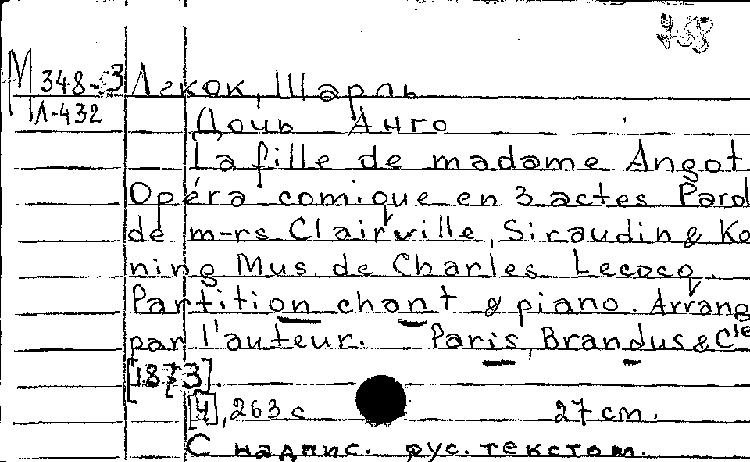 758
М 348-3 Лекок, Шарль
Л-432
Дочь Анго
La fille de madame Angot
Opéra comique en 3 actes Parol
de m-rs Clairville, Siraudin & Ko
ning Mus. de Charles Lecocq
Partition chant & piano. Arrang
par l'auteur. Paris, Brandus & Cie
[1873].
[4], 263 с 27 cm.
С надпис. рус. текстом.